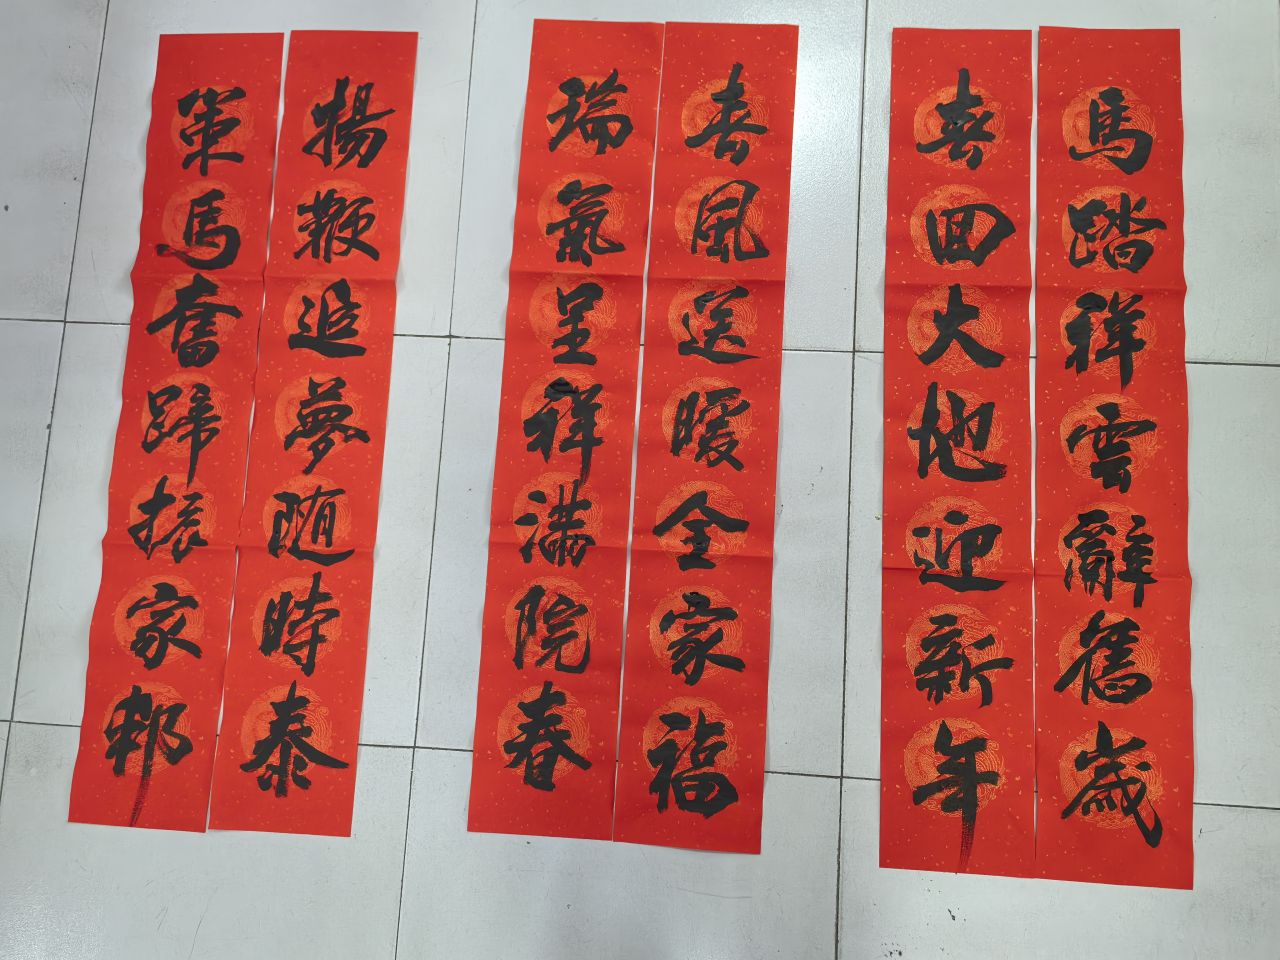 馬踏祥雲辭舊歲
春回大地迎新年
春風送暖全家福
瑞氣呈祥满院春
揚鞭追夢随時泰
策馬奮蹄振家邦